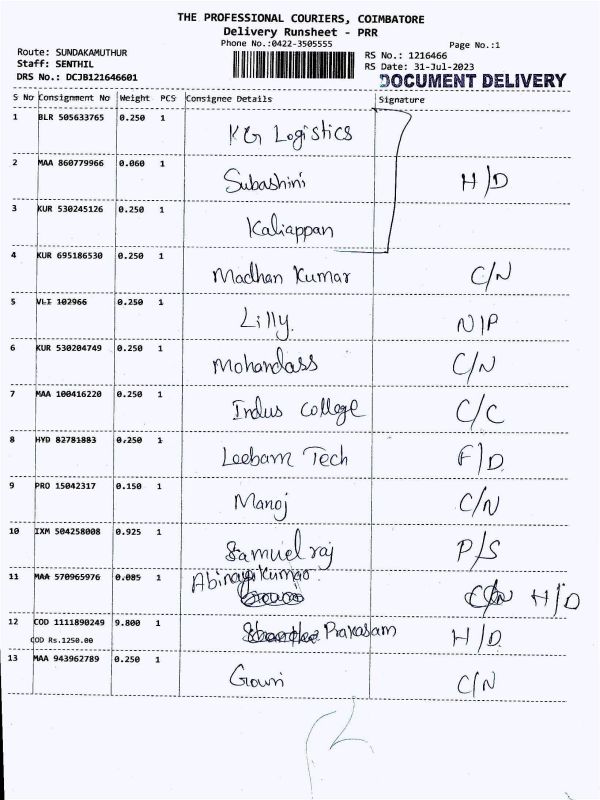 THE PROFESSIONAL COURIERS, COIMBATORE
Delivery Runsheet - PRR
Phone No.:0422-3505555
Page No.:1
Route: SUNDAKAMUTHUR
RS No.: 1216466
Staff: SENTHIL
RS Date: 31-Jul-2023
DRS No.: DCJB121646601
DOCUMENT DELIVERY
S No Consignment No Weight PCS Consignee Details Signature
1 BLR 505633765 0.250 1 KG Logistics
2 MAA 860779966 0.060 1 Subashini H/D
3 KUR 530245126 0.250 1 Kaliappan
4 KUR 695186530 0.250 1 Madhan Kumar C/N
5 VLI 102966 0.250 1 Lilly. N/P
6 KUR 530204749 0.250 1 Mohandass C/N
7 MAA 100416220 0.250 1 Indus College C/C
8 HYD 82781883 0.250 1 Leebam Tech F/D
9 PRO 15042317 0.150 1 Manoj C/N
10 IXM 504258008 0.925 1 Samuel raj P/S
11 MAA 570965976 0.085 1 H/D
12 COD 1111890249 9.800 1 Prakasam H/D
COD Rs.1250.00
13 MAA 943962789 0.250 1 Gowri C/N